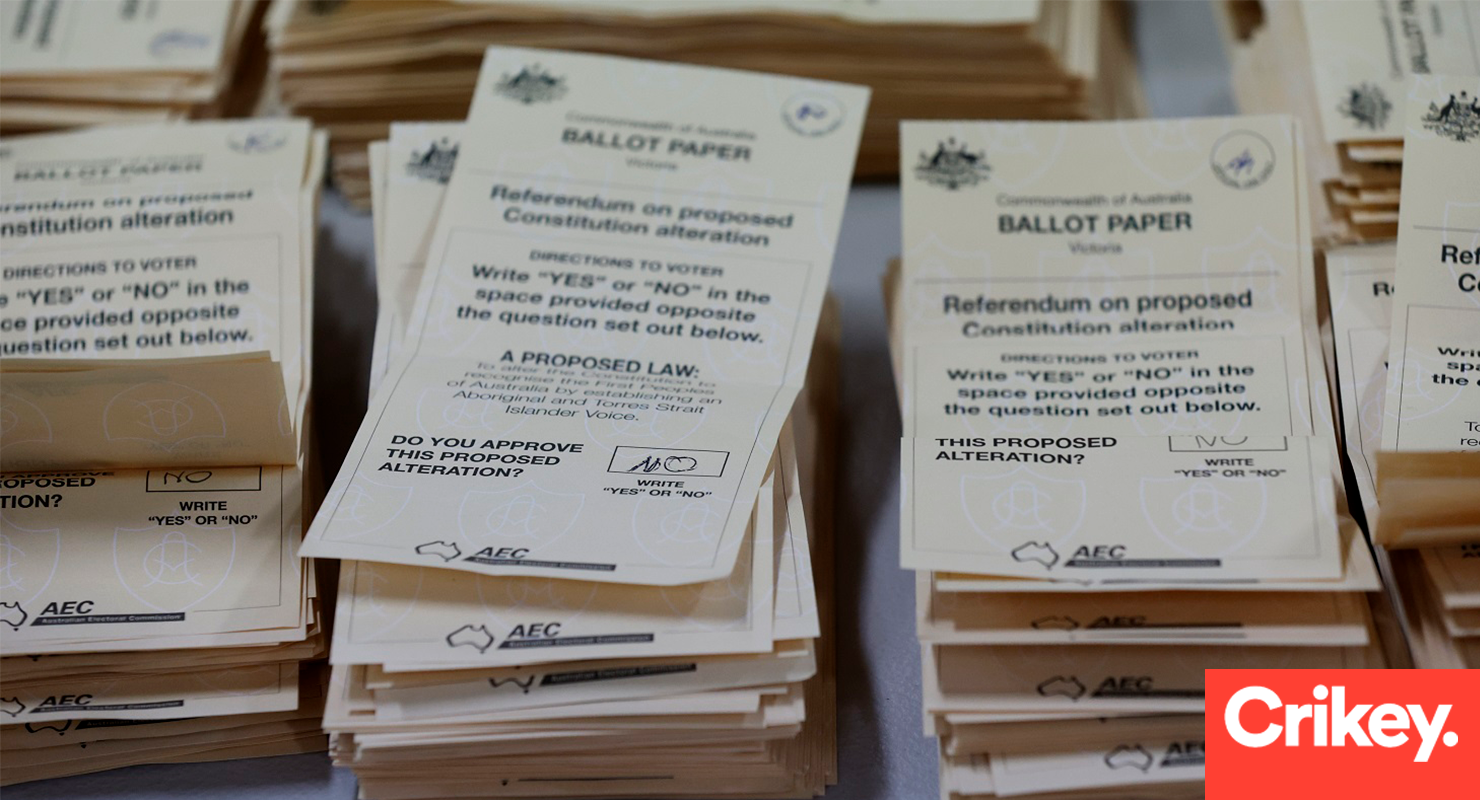 BALLOT PAPER
rendum on proposed
nstitution alteration
DIRECTIONS TO VOTER
"YES" or "NO" in the
ce provided opposite
question set out below.
OPOSED
TION?
NO
WRITE
"YES" OR "NO"
AEC
Australian Electoral Commission
AEC
Commonwealth of Australia
BALLOT PAPER
Victoria
Referendum on proposed
Constitution alteration
DIRECTIONS TO VOTER
Write "YES" or "NO" in the
space provided opposite
the question set out below.
A PROPOSED LAW:
To alter the Constitution to
recognise the First Peoples
of Australia by establishing an
Aboriginal and Torres Strait
Islander Voice.
DO YOU APPROVE
THIS PROPOSED
ALTERATION?
NO
WRITE
"YES" OR "NO"
AEC
AEC
Australian Electoral Commission
Commonwealth of Australia
BALLOT PAPER
Victoria
Referendum on proposed
Constitution alteration
DIRECTIONS TO VOTER
Write "YES" or "NO" in the
space provided opposite
the question set out below.
THIS PROPOSED
ALTERATION?
NO
WRITE
"YES" OR "NO"
AEC
AEC
AEC
AE
BALLOT
Ref
Co
Writ
spa
the
To
Crikey.